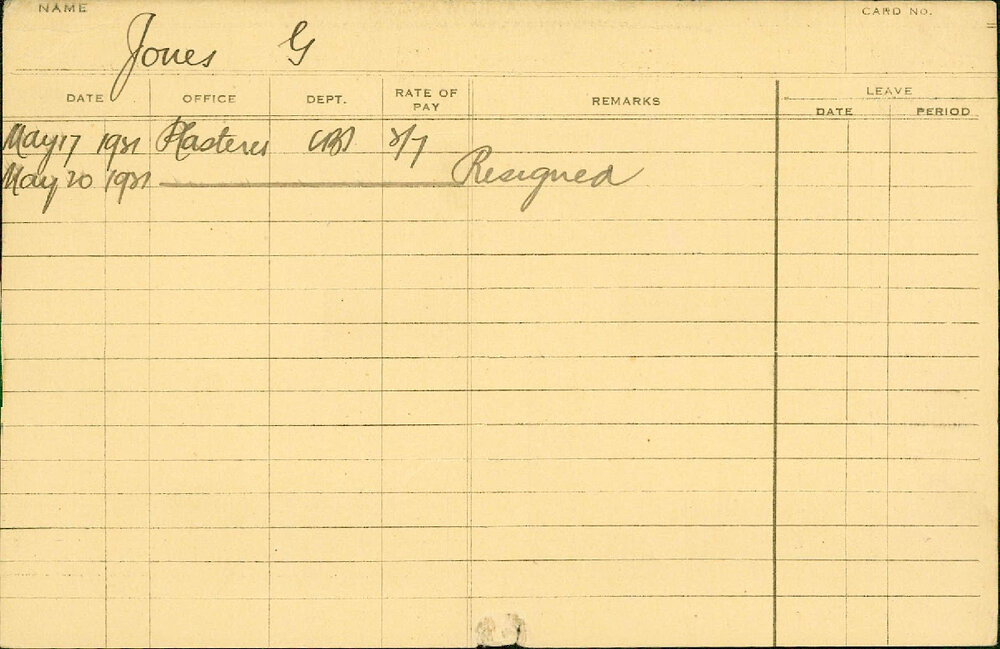 NAME
CARD NO.
Jones G
DATE OFFICE DEPT. RATE OF PAY REMARKS LEAVE
DATE PERIOD
May 17 1921 Plasterer 
May 20 1921 Resigned